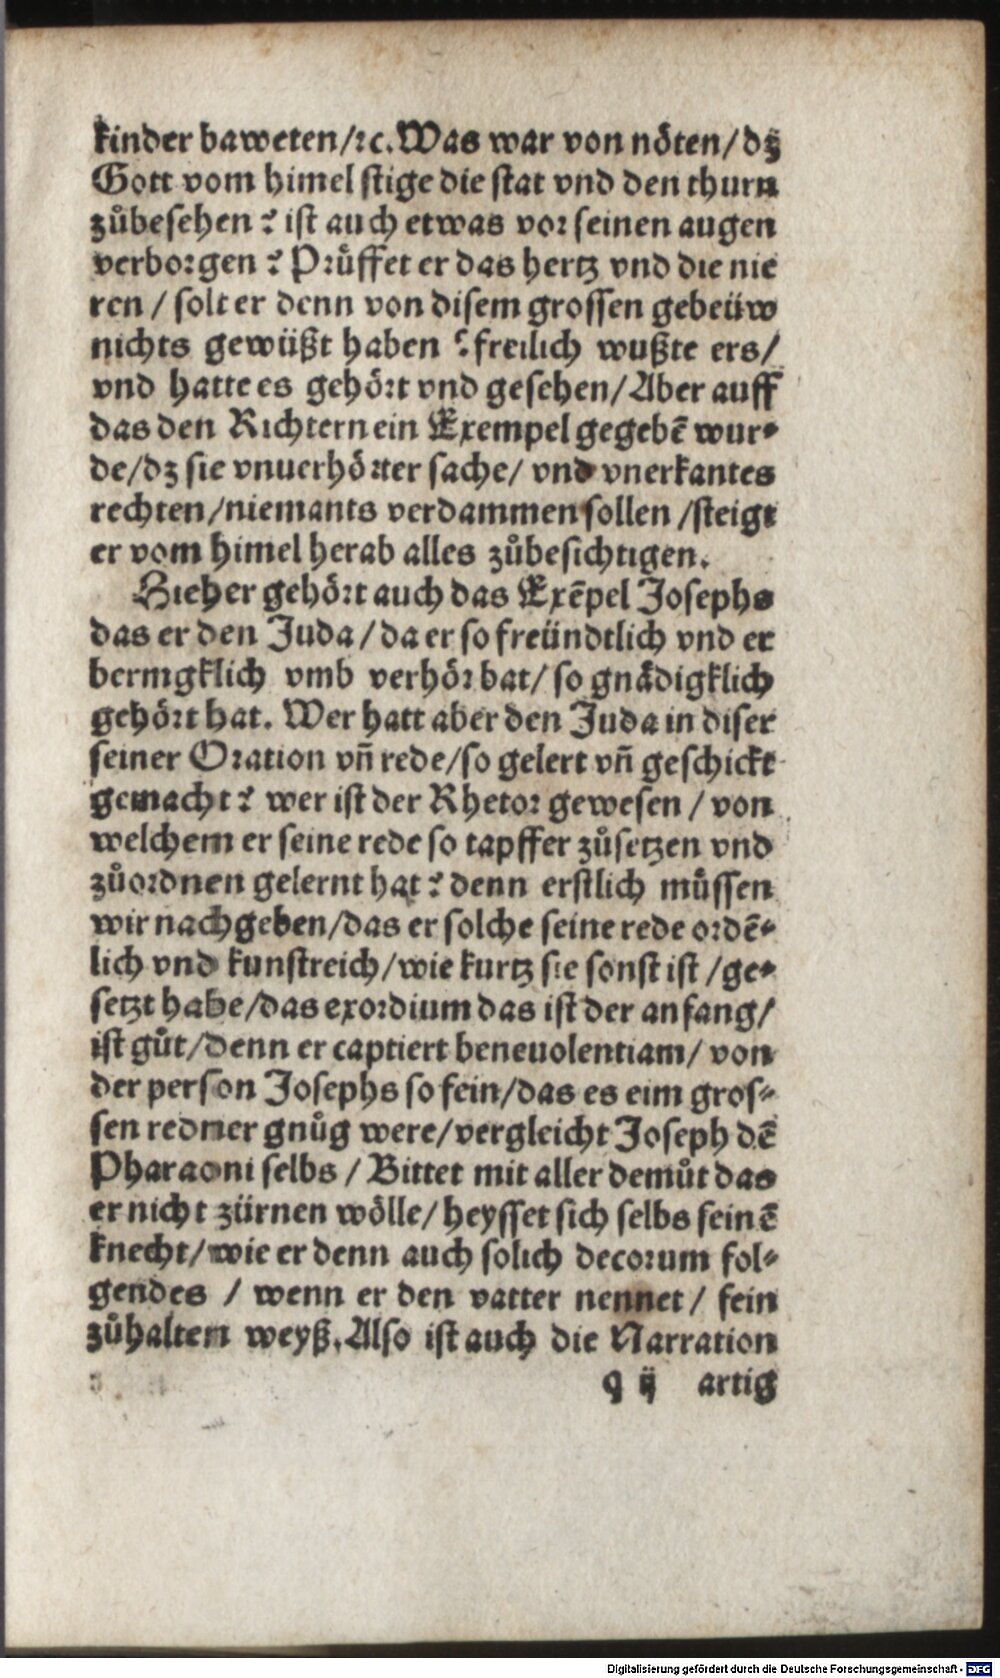 kinder baweten/ꝛc. Was war von nöten/ dʒ
Gott vom himel stige die stat vnd den thurn
zůbesehen? ist auch etwas vor seinen augen
verborgen? Prüffet er das hertz vnd die nie
ren / solt er denn von disem grossen gebeüw
nichts gewüßt haben? freilich wußte ers/
vnd hatte es gehört vnd gesehen/ Aber auff
das den Richtern ein Exempel gegebē wur-
de/dʒ sie vnuerhörter sache/ vnd vnerkantes
rechten/niemants verdammen sollen /steigt
er vom himel herab alles zůbesichtigen.
Hieher gehört auch das Exēpel Josephs
das er den Juda/ da er so freündtlich vnd er
bermgklich vmb verhör bat/ so gnädigklich
gehört hat. Wer hatt aber den Juda in diser
seiner Oration vñ rede/so gelert vñ geschickt
gemacht? wer ist der Rhetor gewesen / von
welchem er seine rede so tapffer zůsetzen vnd
zůordnen gelernt hat? denn erstlich müssen
wir nachgeben/das er solche seine rede ordē-
lich vnd kunstreich/wie kurtz sie sonst ist /ge-
setzt habe/das exordium das ist der anfang/
ist gůt/denn er captiert beneuolentiam/ von
der person Josephs so fein/das es eim gros-
sen redner gnůg were/vergleicht Joseph dē
Pharaoni selbs / Bittet mit aller demůt das
er nicht zürnen wölle/ heysset sich selbs seinē
knecht/wie er denn auch solich decorum fol-
gendes / wenn er den vatter nennet/ fein
zůhalten weyß. Also ist auch die Narration
q ij artig
Digitalisierung gefördert durch die Deutsche Forschungsgemeinschaft - DFG